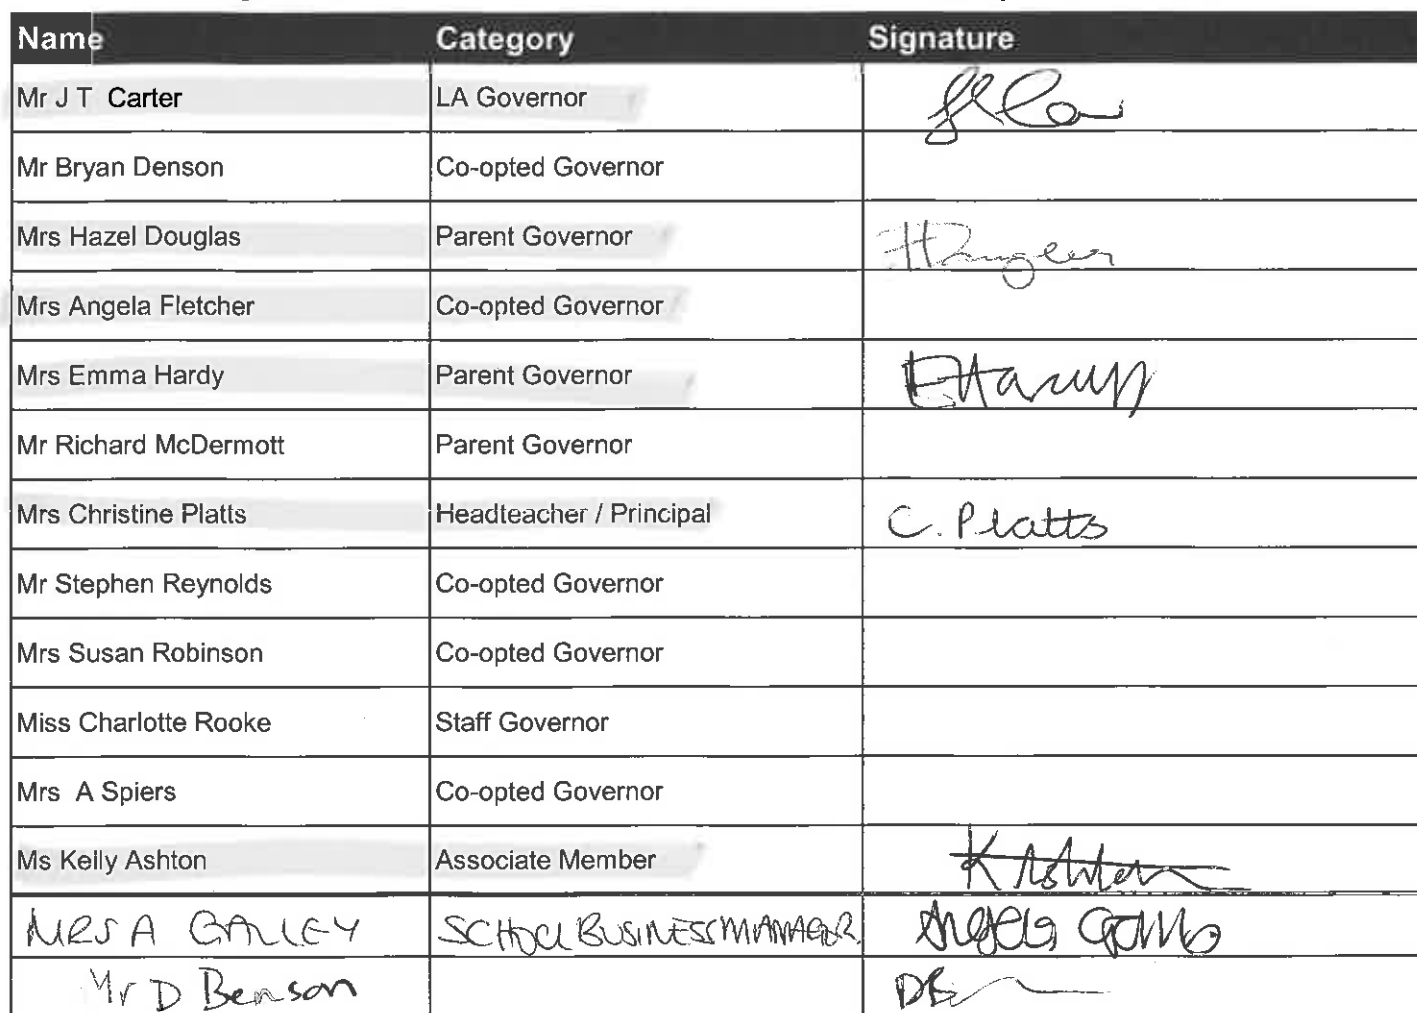 Name Category Signature
Mr J T Carter LA Governor
Mr Bryan Denson Co-opted Governor
Mrs Hazel Douglas Parent Governor
Mrs Angela Fletcher Co-opted Governor
Mrs Emma Hardy Parent Governor EHardy
Mr Richard McDermott Parent Governor
Mrs Christine Platts Headteacher / Principal C. Platts
Mr Stephen Reynolds Co-opted Governor
Mrs Susan Robinson Co-opted Governor
Miss Charlotte Rooke Staff Governor
Mrs A Spiers Co-opted Governor
Ms Kelly Ashton Associate Member K Ashton
MRS A GALLEY SCHOOL BUSINESS MANAGER. Angela
Mr D Benson